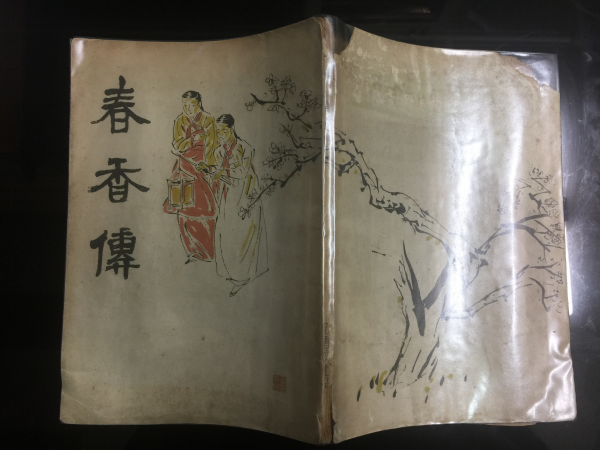 春香傳